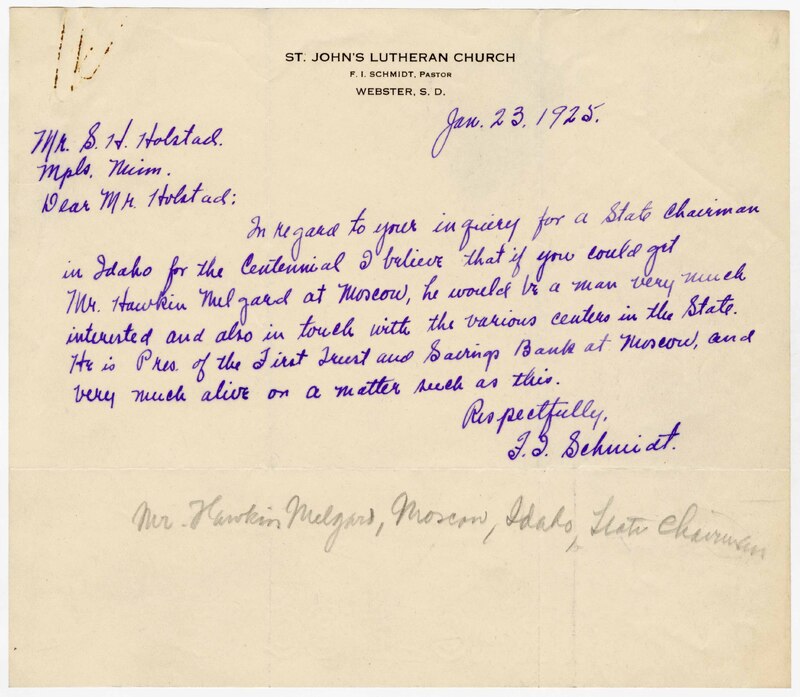 ST. JOHN'S LUTHERAN CHURCH
F. I. SCHMIDT, PASTOR
WEBSTER, S. D.
Jan. 23, 1925.
Mr. S. H. Holstad.
Mpls. Minn.
Dear Mr. Holstad:
In regard to your inquery for a State Chairman
in Idaho for the Centennial I believe that if you could get
Mr. Hawkin Melgard at Moscow, he would be a man very much
interested and also in touch with the various centers in the State.
He is Pres. of the First Trust and Savings Bank at Moscow, and
very much alive on a matter such as this.
Respectfully,
F. I. Schmidt.
Mr. Hawkin Melgard, Moscow, Idaho, State Chairman